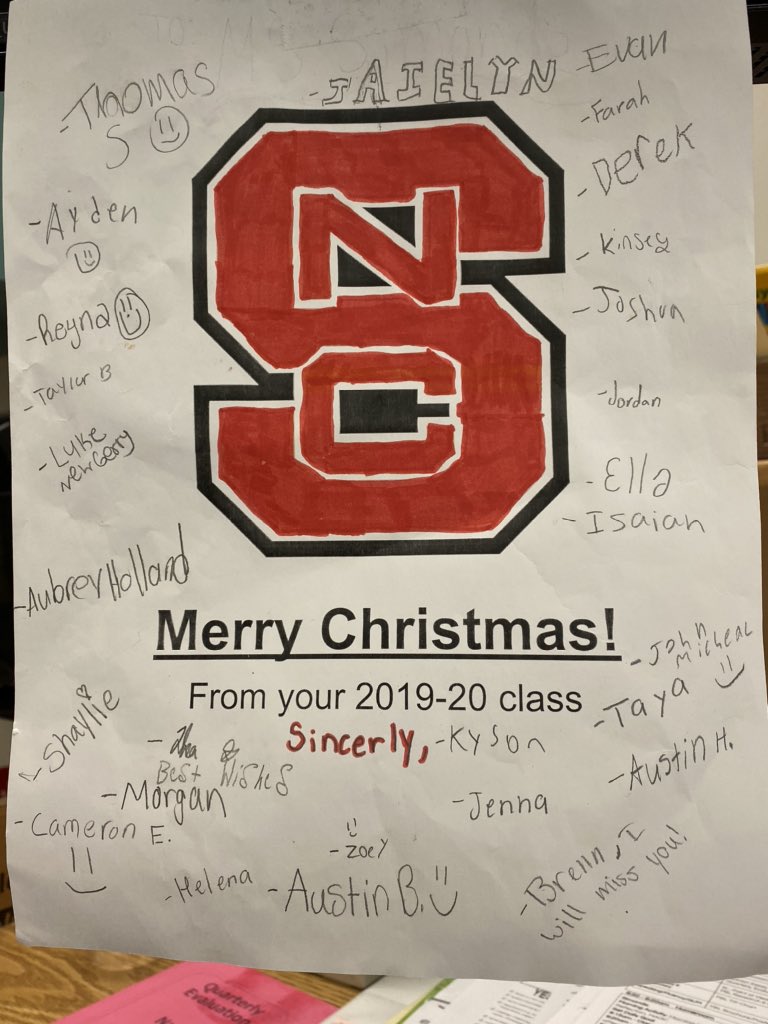 - JAIELYN
- Evan
- Thomas
S
- Farah
- Derek
- Ayden
- Kinsey
- Reyna
- Joshua
- Taylor B
- Jordan
- Luke
Newberry
- Ella
- Isaiah
- Aubrey Holland
NCS
Merry Christmas!
From your 2019-20 class
Sincerly,
- John
Micheal
- Taya
- Shaylie
- Kyson
Best Wishes
- Austin H.
- Morgan
- Jenna
- Cameron E.
- Zoey
- Helena
- Austin B.
- Brenn, I
will miss you!
Quarterly
Evaluation